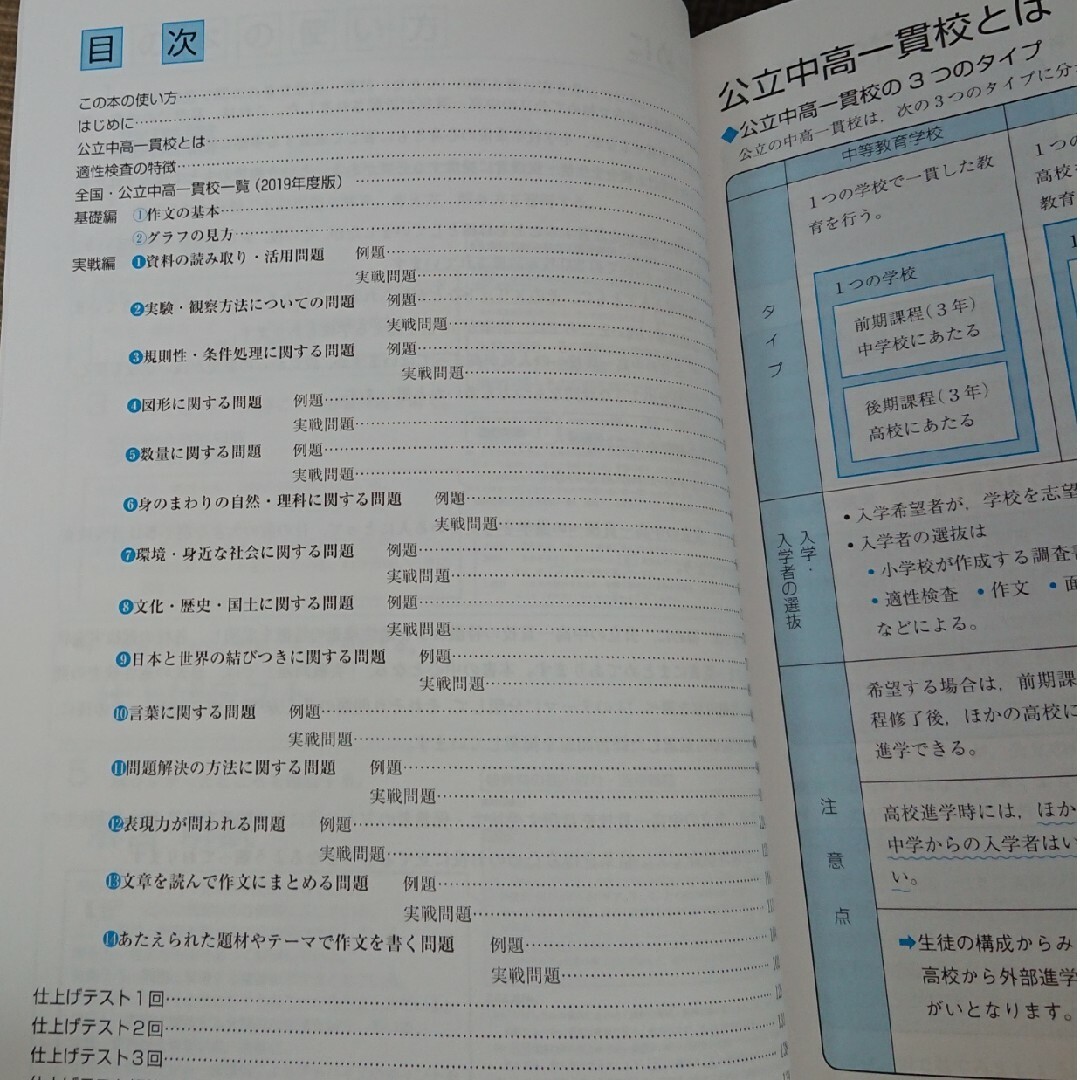 目次
この本の使い方
はじめに
公立中高一貫校とは
適性検査の特徴
全国・公立中高一貫校一覧(2019年度版)
基礎編 ①作文の基本
②グラフの見方
実戦編 ❶資料の読み取り・活用問題 例題
実戦問題
❷実験・観察方法についての問題 例題
実戦問題
❸規則性・条件処理に関する問題 例題
実戦問題
❹図形に関する問題 例題
実戦問題
❺数量に関する問題 例題
実戦問題
❻身のまわりの自然・理科に関する問題 例題
実戦問題
❼環境・身近な社会に関する問題 例題
実戦問題
❽文化・歴史・国土に関する問題 例題
実戦問題
❾日本と世界の結びつきに関する問題 例題
実戦問題
❿言葉に関する問題 例題
実戦問題
⓫問題解決の方法に関する問題 例題
実戦問題
⓬表現力が問われる問題 例題
実戦問題
⓭文章を読んで作文にまとめる問題 例題
実戦問題
⓮あたえられた題材やテーマで作文を書く問題 例題
実戦問題
仕上げテスト1回
仕上げテスト2回
仕上げテスト3回
公立中高一貫校とは
◆公立中高一貫校の3つのタイプ
公立の中高一貫校は，次の3つのタイプに分
中等教育学校
タイプ
1つの学校で一貫した教
育を行う。
1つの学校
前期課程(3年)
中学校にあたる
後期課程(3年)
高校にあたる
1つの
高校を
教育
入学・
入学者の選抜
・入学希望者が，学校を志望
・入学者の選抜は
・小学校が作成する調査書
・適性検査 ・作文 ・面
などによる。
注意点
希望する場合は，前期課
程修了後，ほかの高校に
進学できる。
高校進学時には，ほか
中学からの入学者はい
い。
➡生徒の構成からみ
高校から外部進学
がいとなります。